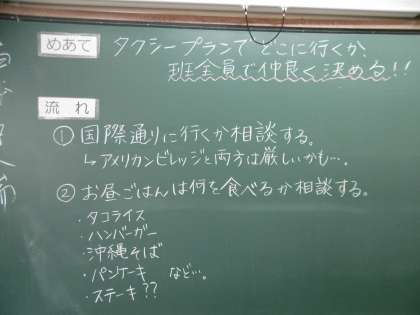 めあて タクシープランでどこに行くか、
班全員で仲良く決める!!
流れ
① 国際通りに行くか相談する。
↳アメリカンビレッジと両方は厳しいかも…。
② お昼ごはんは何を食べるか相談する。
・タコライス
・ハンバーガー
・沖縄そば
・パンケーキ など…。
・ステーキ??